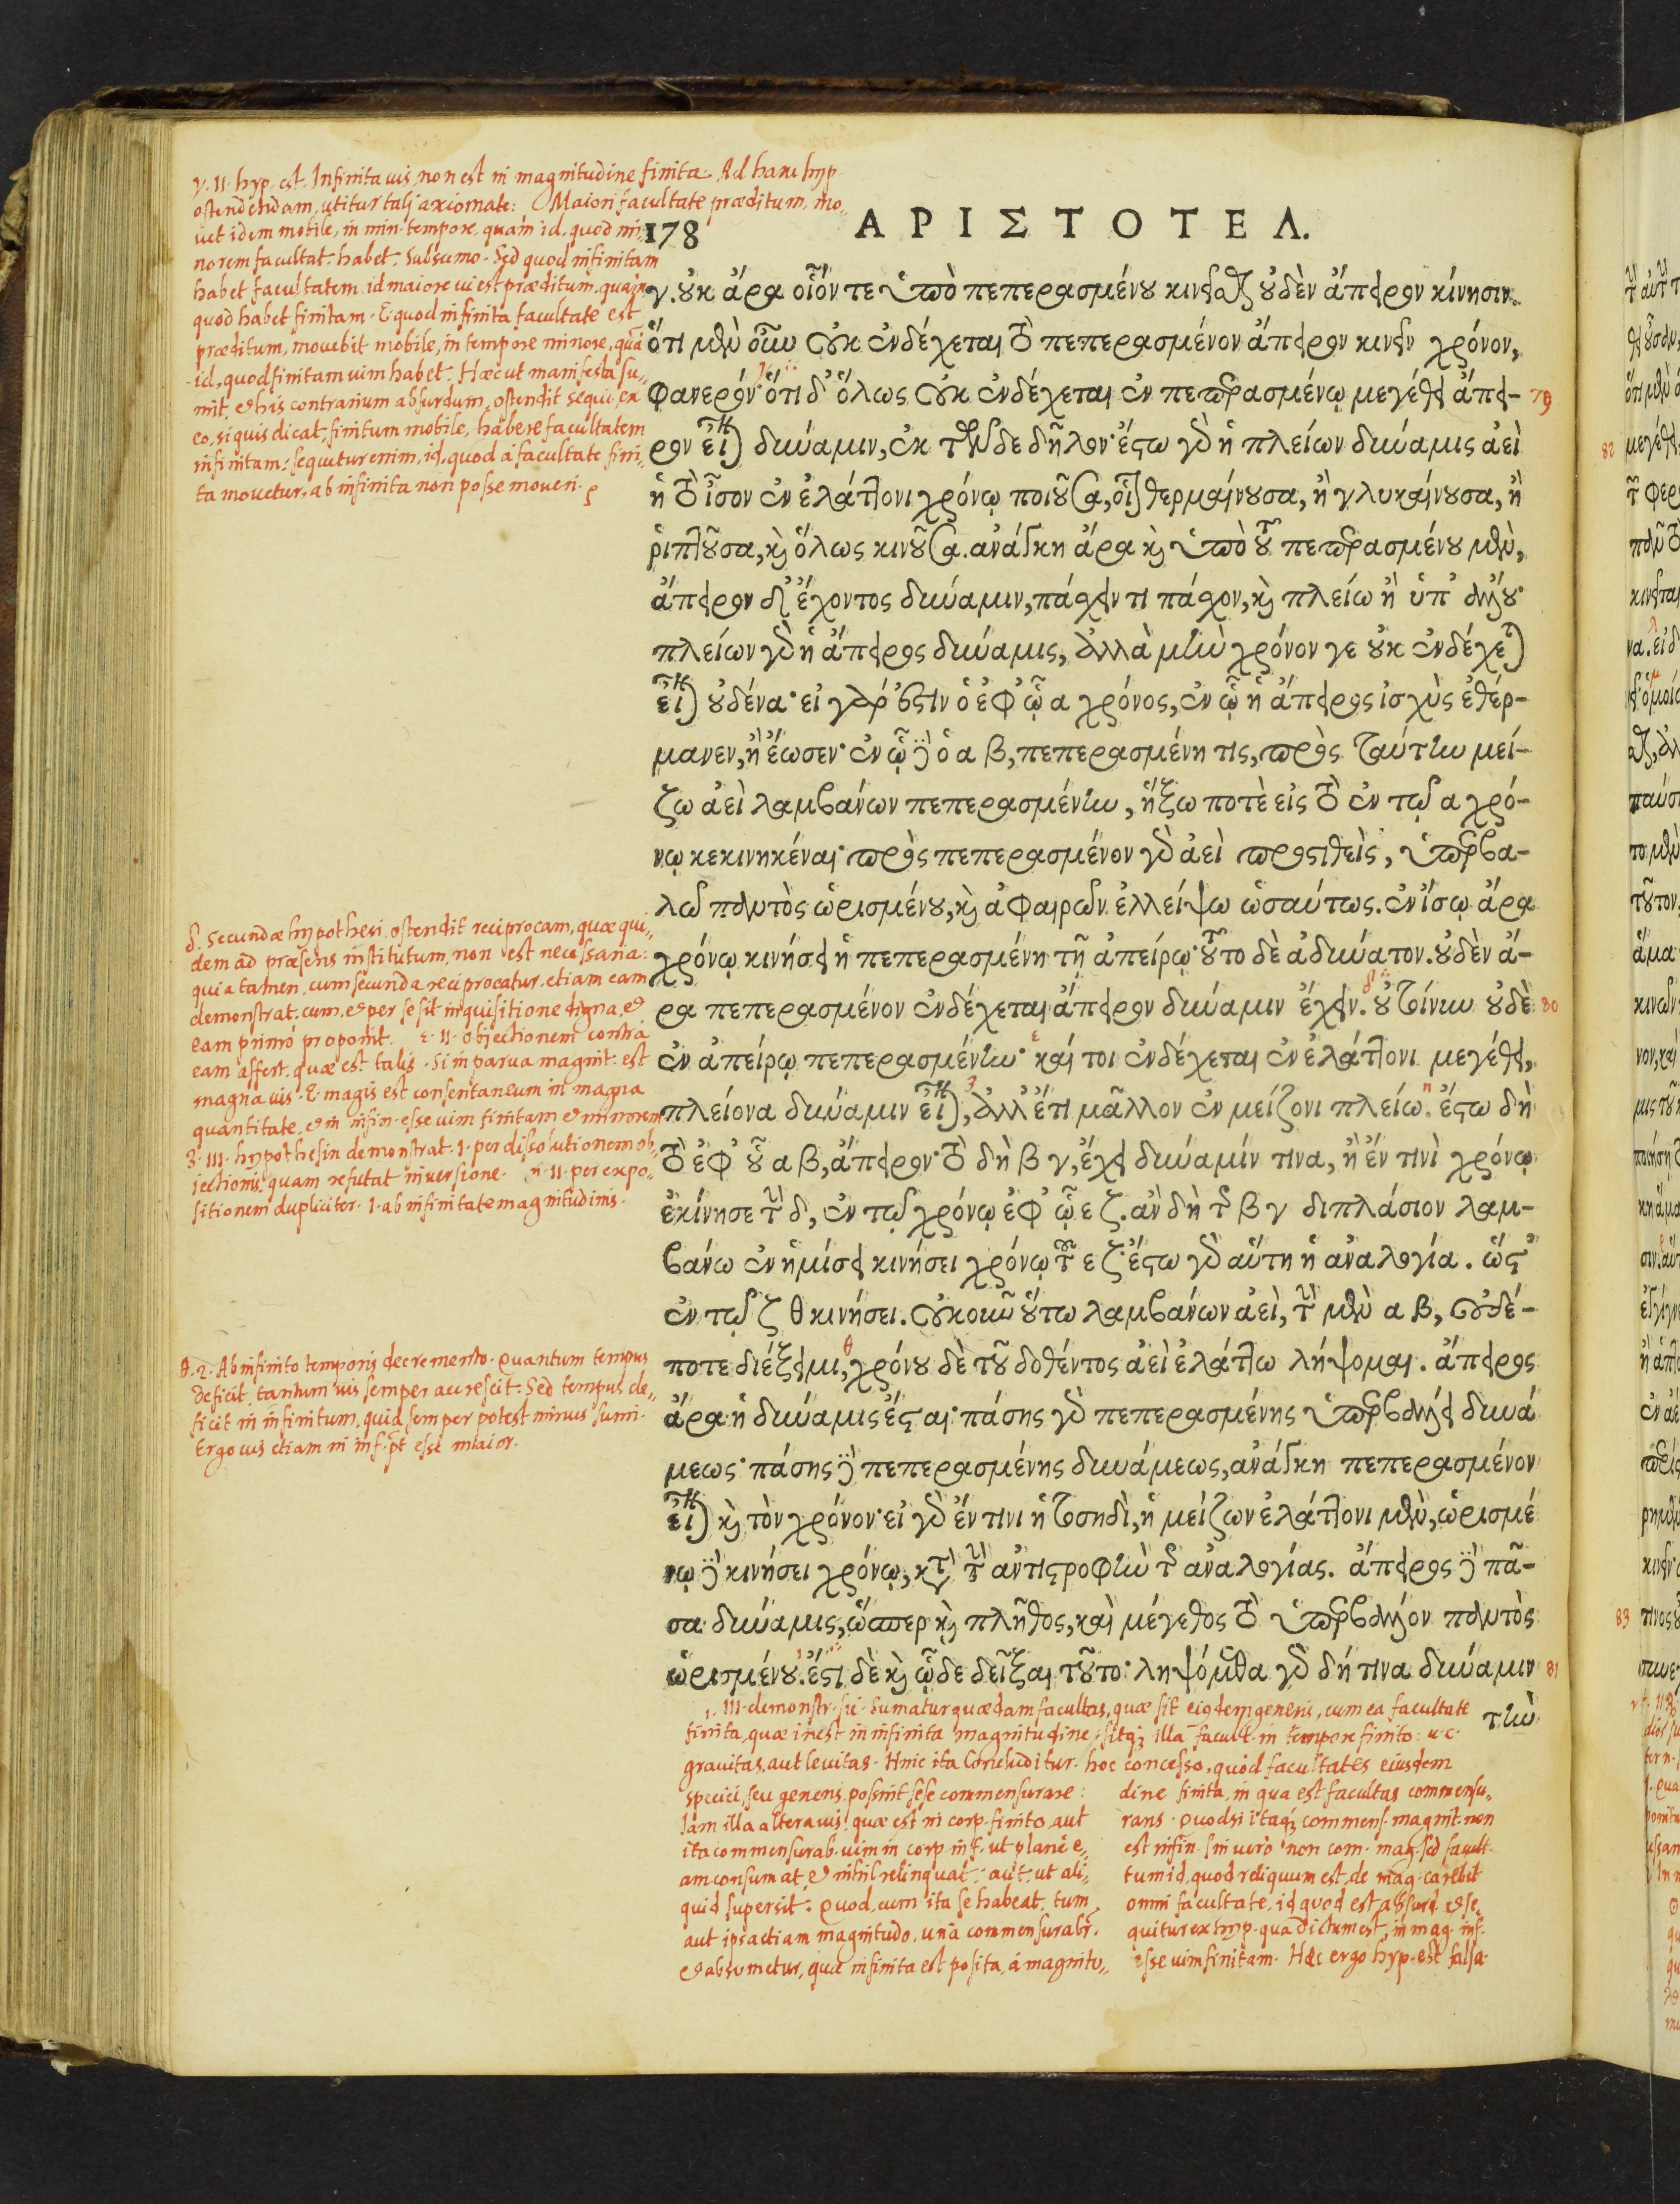 γ. II. hyp. est. Infinita vis non est in magnitudine finita. Ad hanc hyp.
ostendendam, utitur tali axiomate: Maiori facultate præditum, mo-
vet idem mobile, in min. tempore, quam id, quod mi-
norem facultat. habet. Subsumo. Sed quod infinitam
habet facultatem, id maiore vi est præditum, quam
quod habet finitam. E. quod infinita facultate est
præditum, movebit mobile, in tempore minore, quã
id, quod finitam vim habet. Hæc ut manifesta su-
mit, et his contrarium absurdum ostendit sequi ex
eo, si quis dicat, finitum mobile, habere facultatem
infinitam: sequitur enim, id, quod a facultate fini-
ta movetur, ab infinita non posse moveri.
178
ΑΡΙΣΤΟΤΕΛ.
γ. οὐκ ἄρα οἷόν τε ὑπὸ πεπερασμένου κινεῖσθαι οὐδὲν ἄπειρον κίνησιν.
ὅτι μὲν οὖν οὐκ ἐνδέχεται τὸ πεπερασμένον ἄπειρον κινεῖν χρόνον,
φανερόν· ὅτι δ' ὅλως οὐκ ἐνδέχεται ἐν πεπερασμένῳ μεγέθει ἄπει-
79
ρον εἶναι δύναμιν, ἐκ τῶνδε δῆλον· ἔστω γὰρ ἡ πλείων δύναμις ἀεὶ
ἡ τὸ ἶσον ἐν ἐλάττονι χρόνῳ ποιοῦσα, οἷον θερμαίνουσα, ἢ γλυκαίνουσα, ἢ
ῥιπτοῦσα, καὶ ὅλως κινοῦσα. ἀνάγκη ἄρα καὶ ὑπὸ τοῦ πεπερασμένου μὲν,
ἄπειρον δ' ἔχοντος δύναμιν, πάσχειν τι πάσχον, καὶ πλείω ἢ ὑπ' ἄλλου·
πλείων γὰρ ἡ ἄπειρος δύναμις, ἀλλὰ μὴν χρόνον γε οὐκ ἐνδέχεται
εἶναι οὐδένα· εἰ γάρ ἐστιν ὁ ἐφ' ᾧ α χρόνος, ἐν ᾧ ἡ ἄπειρος ἰσχὺς ἐθέρ-
μανεν, ἢ ἔωσεν· ἐν ᾧ δὲ ὁ α β, πεπερασμένη τις, πρὸς ταύτην μεί-
ζω ἀεὶ λαμβάνων πεπερασμένην, ἥξω ποτὲ εἰς τὸ ἐν τῷ α χρό-
νῳ κεκινηκέναι· πρὸς πεπερασμένον γὰρ ἀεὶ προστιθεὶς, ὑπερβα-
λῶ παντὸς ὡρισμένου, καὶ ἀφαιρῶν ἐλλείψω ὡσαύτως. ἐν ἴσῳ ἄρα
χρόνῳ κινήσει ἡ πεπερασμένη τῇ ἀπείρῳ· τοῦτο δὲ ἀδύνατον. οὐδὲν ἄ-
ρα πεπερασμένον ἐνδέχεται ἄπειρον δύναμιν ἔχειν. οὐ τοίνυν οὐδὲ
80
ἐν ἀπείρῳ πεπερασμένην· καί τοι ἐνδέχεται ἐν ἐλάττονι μεγέθει,
πλείονα δύναμιν εἶναι, ἀλλ' ἔτι μᾶλλον ἐν μείζονι πλείω. ἔστω δὴ
τὸ ἐφ' οὗ α β, ἄπειρον· τὸ δὴ β γ, ἔχει δύναμίν τινα, ἢ ἔν τινὶ χρόνῳ
ἐκίνησε τὴν δ, ἐν τῷ χρόνῳ ἐφ' ᾧ ε ζ. ἂν δὴ τῆς β γ διπλάσιον λαμ-
βάνω ἐν ἡμίσει κινήσει χρόνῳ τοῦ ε ζ· ἔστω γὰρ αὕτη ἡ ἀναλογία. ὥστ'
ἐν τῷ ζ θ κινήσει. οὐκοῦν οὕτω λαμβάνων ἀεὶ, τὴν μὲν α β, οὐδέ-
ποτε διέξειμι, χρόνου δὲ τοῦ δοθέντος ἀεὶ ἐλάττω λήψομαι. ἄπειρος
ἄρα ἡ δύναμις ἔσται· πάσης γὰρ πεπερασμένης ὑπερβάλλει δυνά
μεως· πάσης δὲ πεπερασμένης δυνάμεως, ἀνάγκη πεπερασμένον
εἶναι καὶ τὸν χρόνον· εἰ γὰρ ἔν τινι ἡ τοσηδὶ, ἡ μείζων ἐλάττονι μὲν, ὡρισμέ
νῳ δὲ κινήσει χρόνῳ, κατὰ τὴν ἀντιστροφὴν τῆς ἀναλογίας. ἄπειρος δὲ πᾶ-
σα δύναμις, ὥσπερ καὶ πλῆθος, καὶ μέγεθος τὸ ὑπερβάλλον παντὸς
ὡρισμένου. ἔστι δὲ καὶ ὧδε δεῖξαι τοῦτο· ληψόμεθα γὰρ δή τινα δύναμιν
81
τὴν
δ. Secundæ hypothesi, ostendit reciprocam, quæ qui-
dem ad præsens institutum, non est necessaria:
quia tamen, cum secunda reciprocatur, etiam eam
demonstrat. cum, et per se sit inquisitione digna, et
eam primò proponit. ε. II. objectionem contra
eam affert, quæ est talis. Si in parva magnit. est
magna vis. E. magis est consentaneum in magna
quantitate, et in infin. esse vim finitam et minorem
ζ. III. hypothesin demonstrat. I. per dissolutionem ob-
jectionis, quam refutat inversione. η. II. per expo-
sitionem dupliciter. I. ab infinitate magnitudinis.
θ. 2. Ab infinito temporis decremento. Quantum tempus
deficit, tantum vis semper accrescit: Sed tempus de-
ficit in infinitum, quid semper potest minus sumi.
Ergo vis etiam in inf. pt esse maior.
ι. III. demonstr. sic. Sumatur quædam facultas, quæ sit eiusdem generis, cum ea facultate
finita, quæ inest in infinita magnitudine, sitq; illa facult. in tempore finito: u. c.
gravitas, aut levitas. Hinc ita Concluditur. hoc concesso, quòd facultates eiusdem
speciei, seu generis possint sese commensurare:
Iam illa altera vis, quæ est in corp. finito, aut
ita commensurab. vim in corp. inf. ut planè e-
am consumat, et nihil relinquat: aut, ut ali-
quid supersit: Quod, cum ita se habeat, tum
aut ipsa etiam magnitudo, unà commensurabr.
et absumetur, quæ infinita est posita, à magnitu-
dine finita, in qua est facultas commensu-
rans. Quodsi itaq; commens. magnit. non
est infin. sin verò non com. mag. sed facult.
tum id, quod reliquum est, de mag. carebit
omni facultate, id quod est absurd. et se-
quitur ex hyp. qua dictum est, in mag. inf.
esse vim finitam. Hæc ergo hyp. est falsa.
82
83